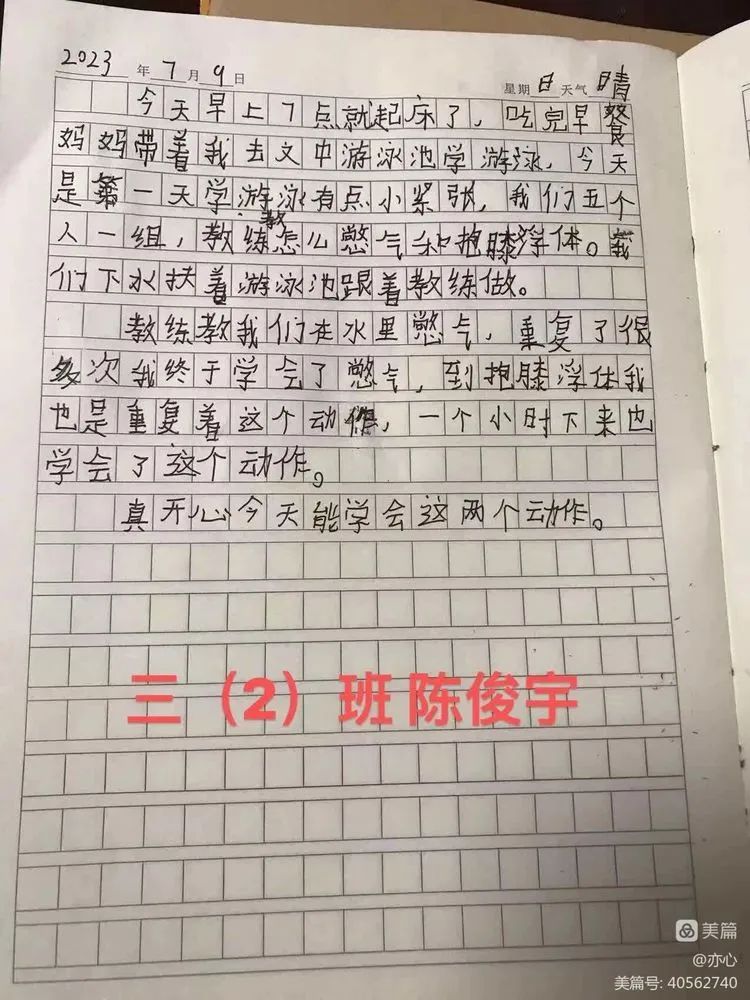 2023年7月9日 星期日天气晴
今天早上7点就起床了，吃完早餐
妈妈带着我去文中游泳池学游泳，今天
是第一天学游泳有点小紧张，我们五个
人一组，教练教怎么憋气和抱膝浮体。我
们下水扶着游泳池跟着教练做。
教练教我们在水里憋气，重复了很
多次我终于学会了憋气，到抱膝浮体我
也是重复着这个动作，一个小时下来也
学会了这个动作。
真开心今天能学会这两个动作。
三（2）班 陈俊宇
美篇
@亦心
美篇号: 40562740